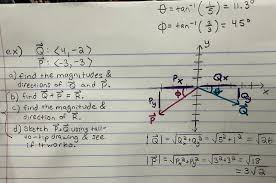 θ = tan⁻¹(1/5) = 11.3°
Φ = tan⁻¹(3/3) = 45°
ex) Q⃗: ⟨4, -2⟩
P⃗: ⟨-3, -3⟩
a) find the magnitudes &
directions of Q⃗ and P⃗.
b) find Q⃗ + P⃗ = R⃗.
c) find the magnitude &
direction of R⃗.
d) Sketch P⃗+Q⃗ using tail-
to-tip drawing & see
if it works.
y
x
Px
Qx
Py
Qy
Φ
θ
P⃗
Q⃗
|Q⃗| = √Qx²+Qy² = √5²+1² = √26
|P⃗| = √Px²+Py² = √3²+3² = √18
= 3√2